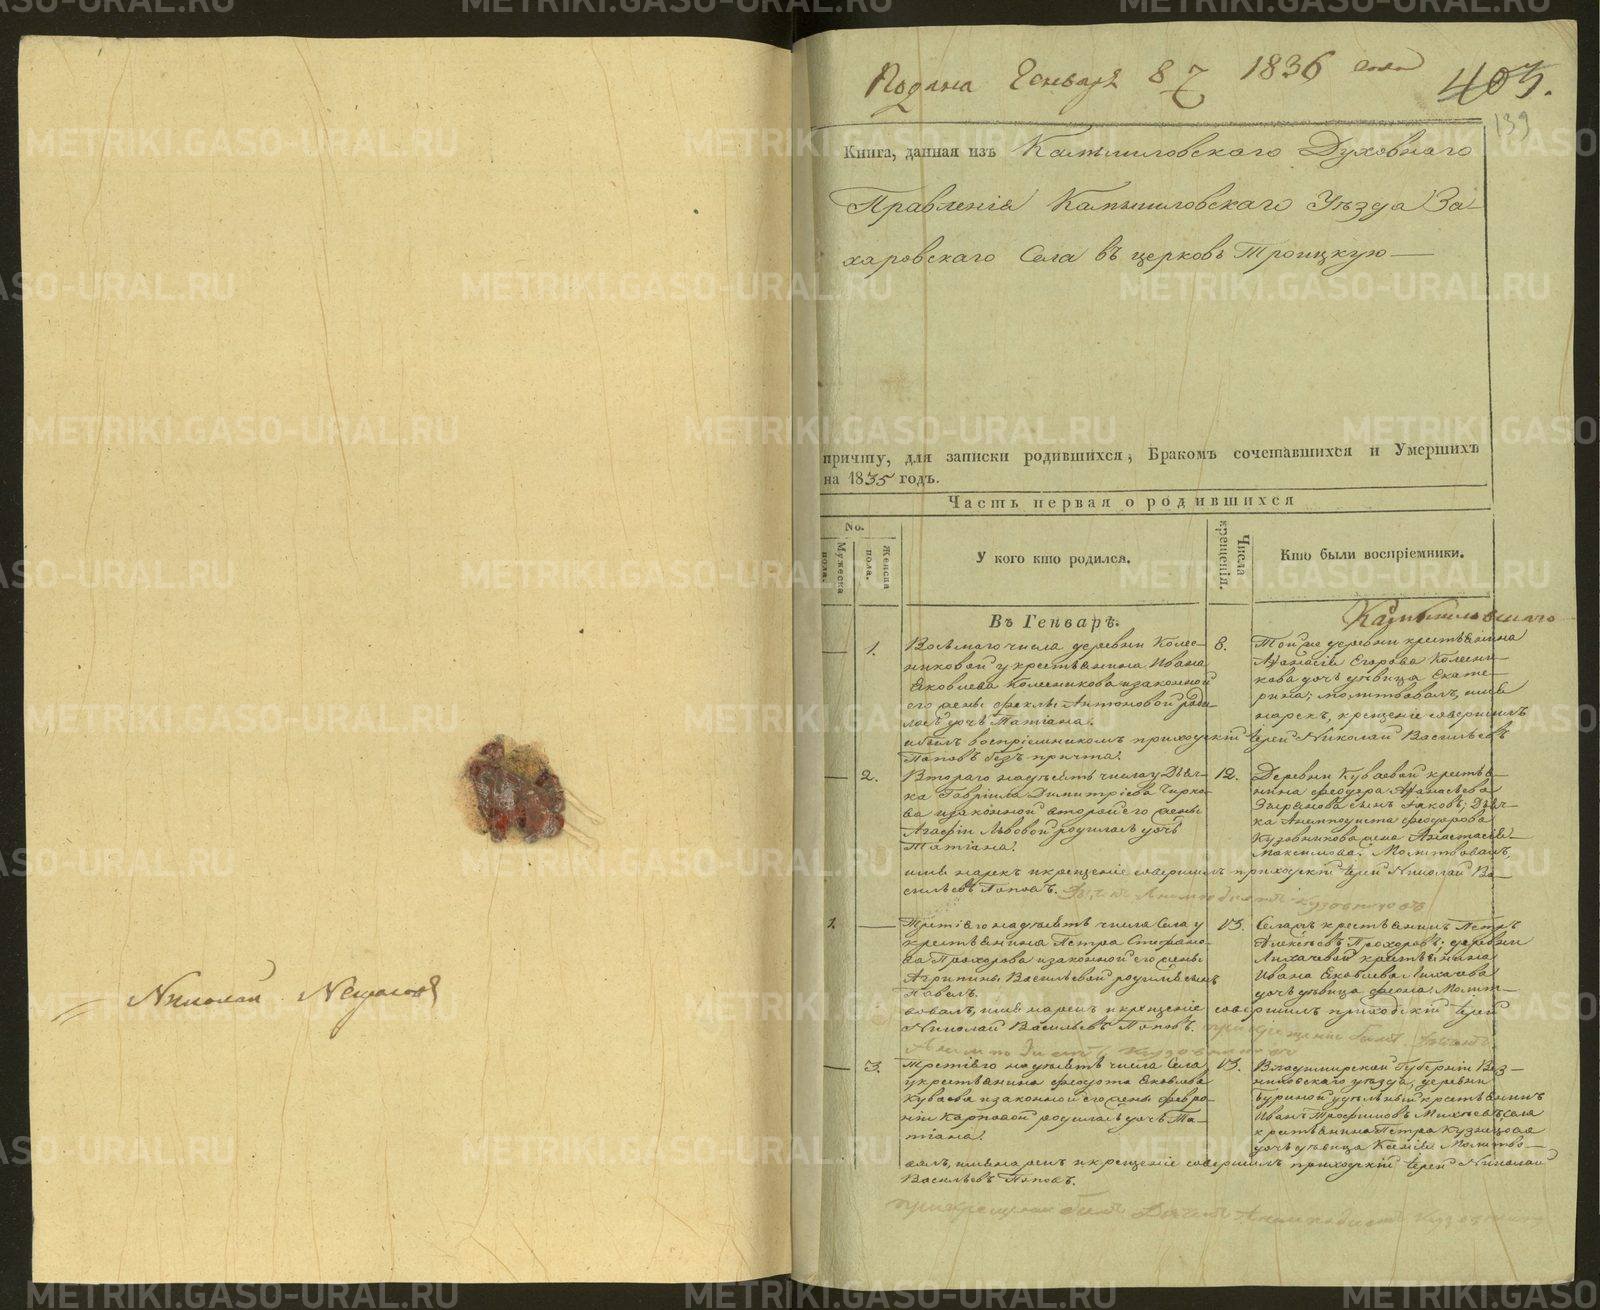 Николай
Подана Генваря 8 1836 года
403.
139
Книга, данная изъ Камышловскаго Духовнаго
Правленія Камышловскаго Уѣзда За-
харовскаго Села въ церковь Троицкую
причту, для записки родившихся, Бракомъ сочетавшихся и Умершихъ
на 1835 годъ.
Часть первая о родившихся
No.
Мужеска пола.
Женска пола.
У кого кто родился.
Числа крещенія.
Кто были воспріемники.
Въ Генварѣ.
Камышловскаго
1.
Восьмаго числа деревни Колес-
никовой у крестьянина Ивана
Яковлева Колесникова и законной
его жены Феклы Антоновой роди-
лась дочь Татіана.
8.
Той же деревни крестьянина
Афанасія Егорова Колесни-
кова дочь дѣвица Екате-
рина; молитвовалъ, имя
нарекъ, крещеніе совершилъ
и былъ воспріемникомъ приходскій Іерей Николай Васильевъ
Поповъ безъ причта.
2.
Втораго надесять числа у Дьяч-
ка Гавріила Димитріева
и законной второй его жены
Агафіи Львовой родилась дочь
Татіана.
12.
Деревни Куваевой крестья-
нина Феодора Афанасьева
Зырянова сынъ Іаковъ; Дьяч-
ка Анемподиста Феодорова
Кузовникова жена Анастасія
Максимова. Молитвовалъ,
имя нарекъ и крещеніе совершилъ приходскій Іерей Николай Ва-
сильевъ Поповъ. Дьячекъ Анемподистъ Кузовниковъ
1.
Третіяго надесять числа Села у
крестьянина Петра Стефано-
ва Прохорова и законной его жены
Агрипины Васильевой родился сынъ
Павелъ.
13.
Села крестьянинъ Петръ
Алексѣевъ Прохоровъ; деревни
Лихачевой крестьянина
Ивана Яковлева Лихачева
дочь дѣвица Феона. Молит-
вовалъ, имя нарекъ и крещеніе совершилъ приходскій Іерей
Николай Васильевъ Поповъ. при крещеніи былъ Дьячекъ
Анемподистъ Кузовниковъ
3.
Третіяго надесять числа Села
у крестьянина Федота Яковлева
Куваева и законной его жены Февро-
ніи Карповой родилась дочь Та-
тіана.
13.
Владимирской Губерніи Вяз-
никовскаго уѣзда, деревни
Буриной удѣльный крестьянинъ
Иванъ Трофимовъ Михѣевъ села
крестьянина Петра Кузнецова
дочь дѣвица Ксенія Молитво-
валъ, имя нарекъ и крещеніе совершилъ приходскій Іерей Николай
Васильевъ Поповъ.
при крещеніи былъ Дьячекъ Анемподистъ Кузовниковъ
METRIKI.GASO-URAL.RU